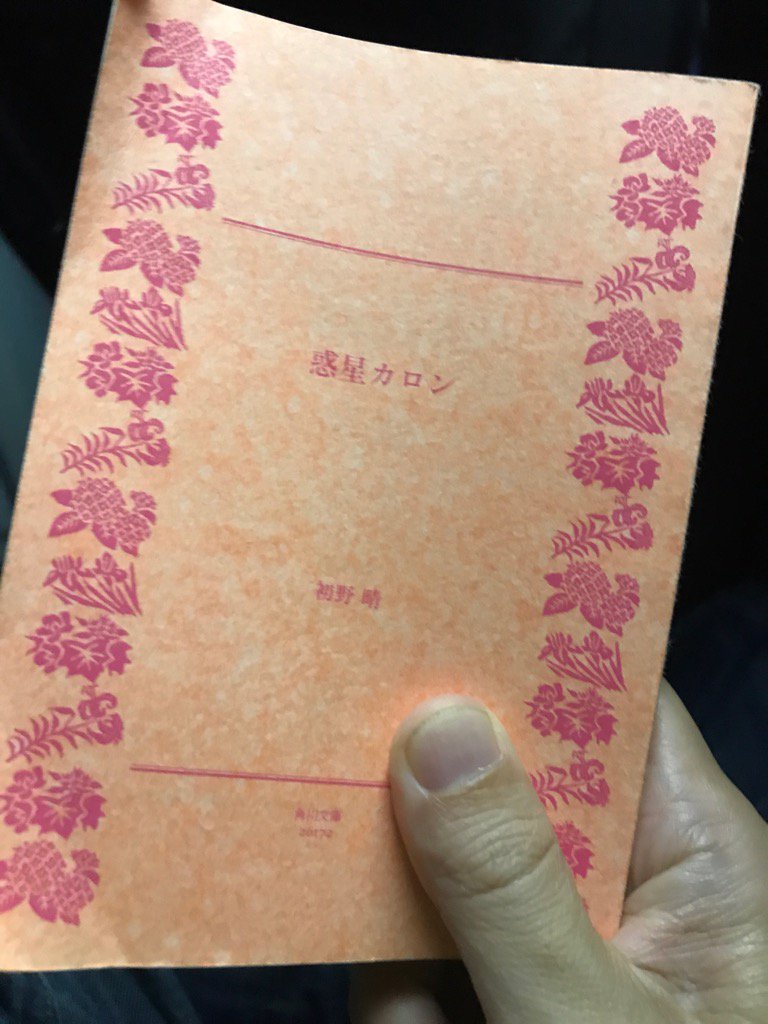 惑星カロン
初野 晴
角川文庫
20172